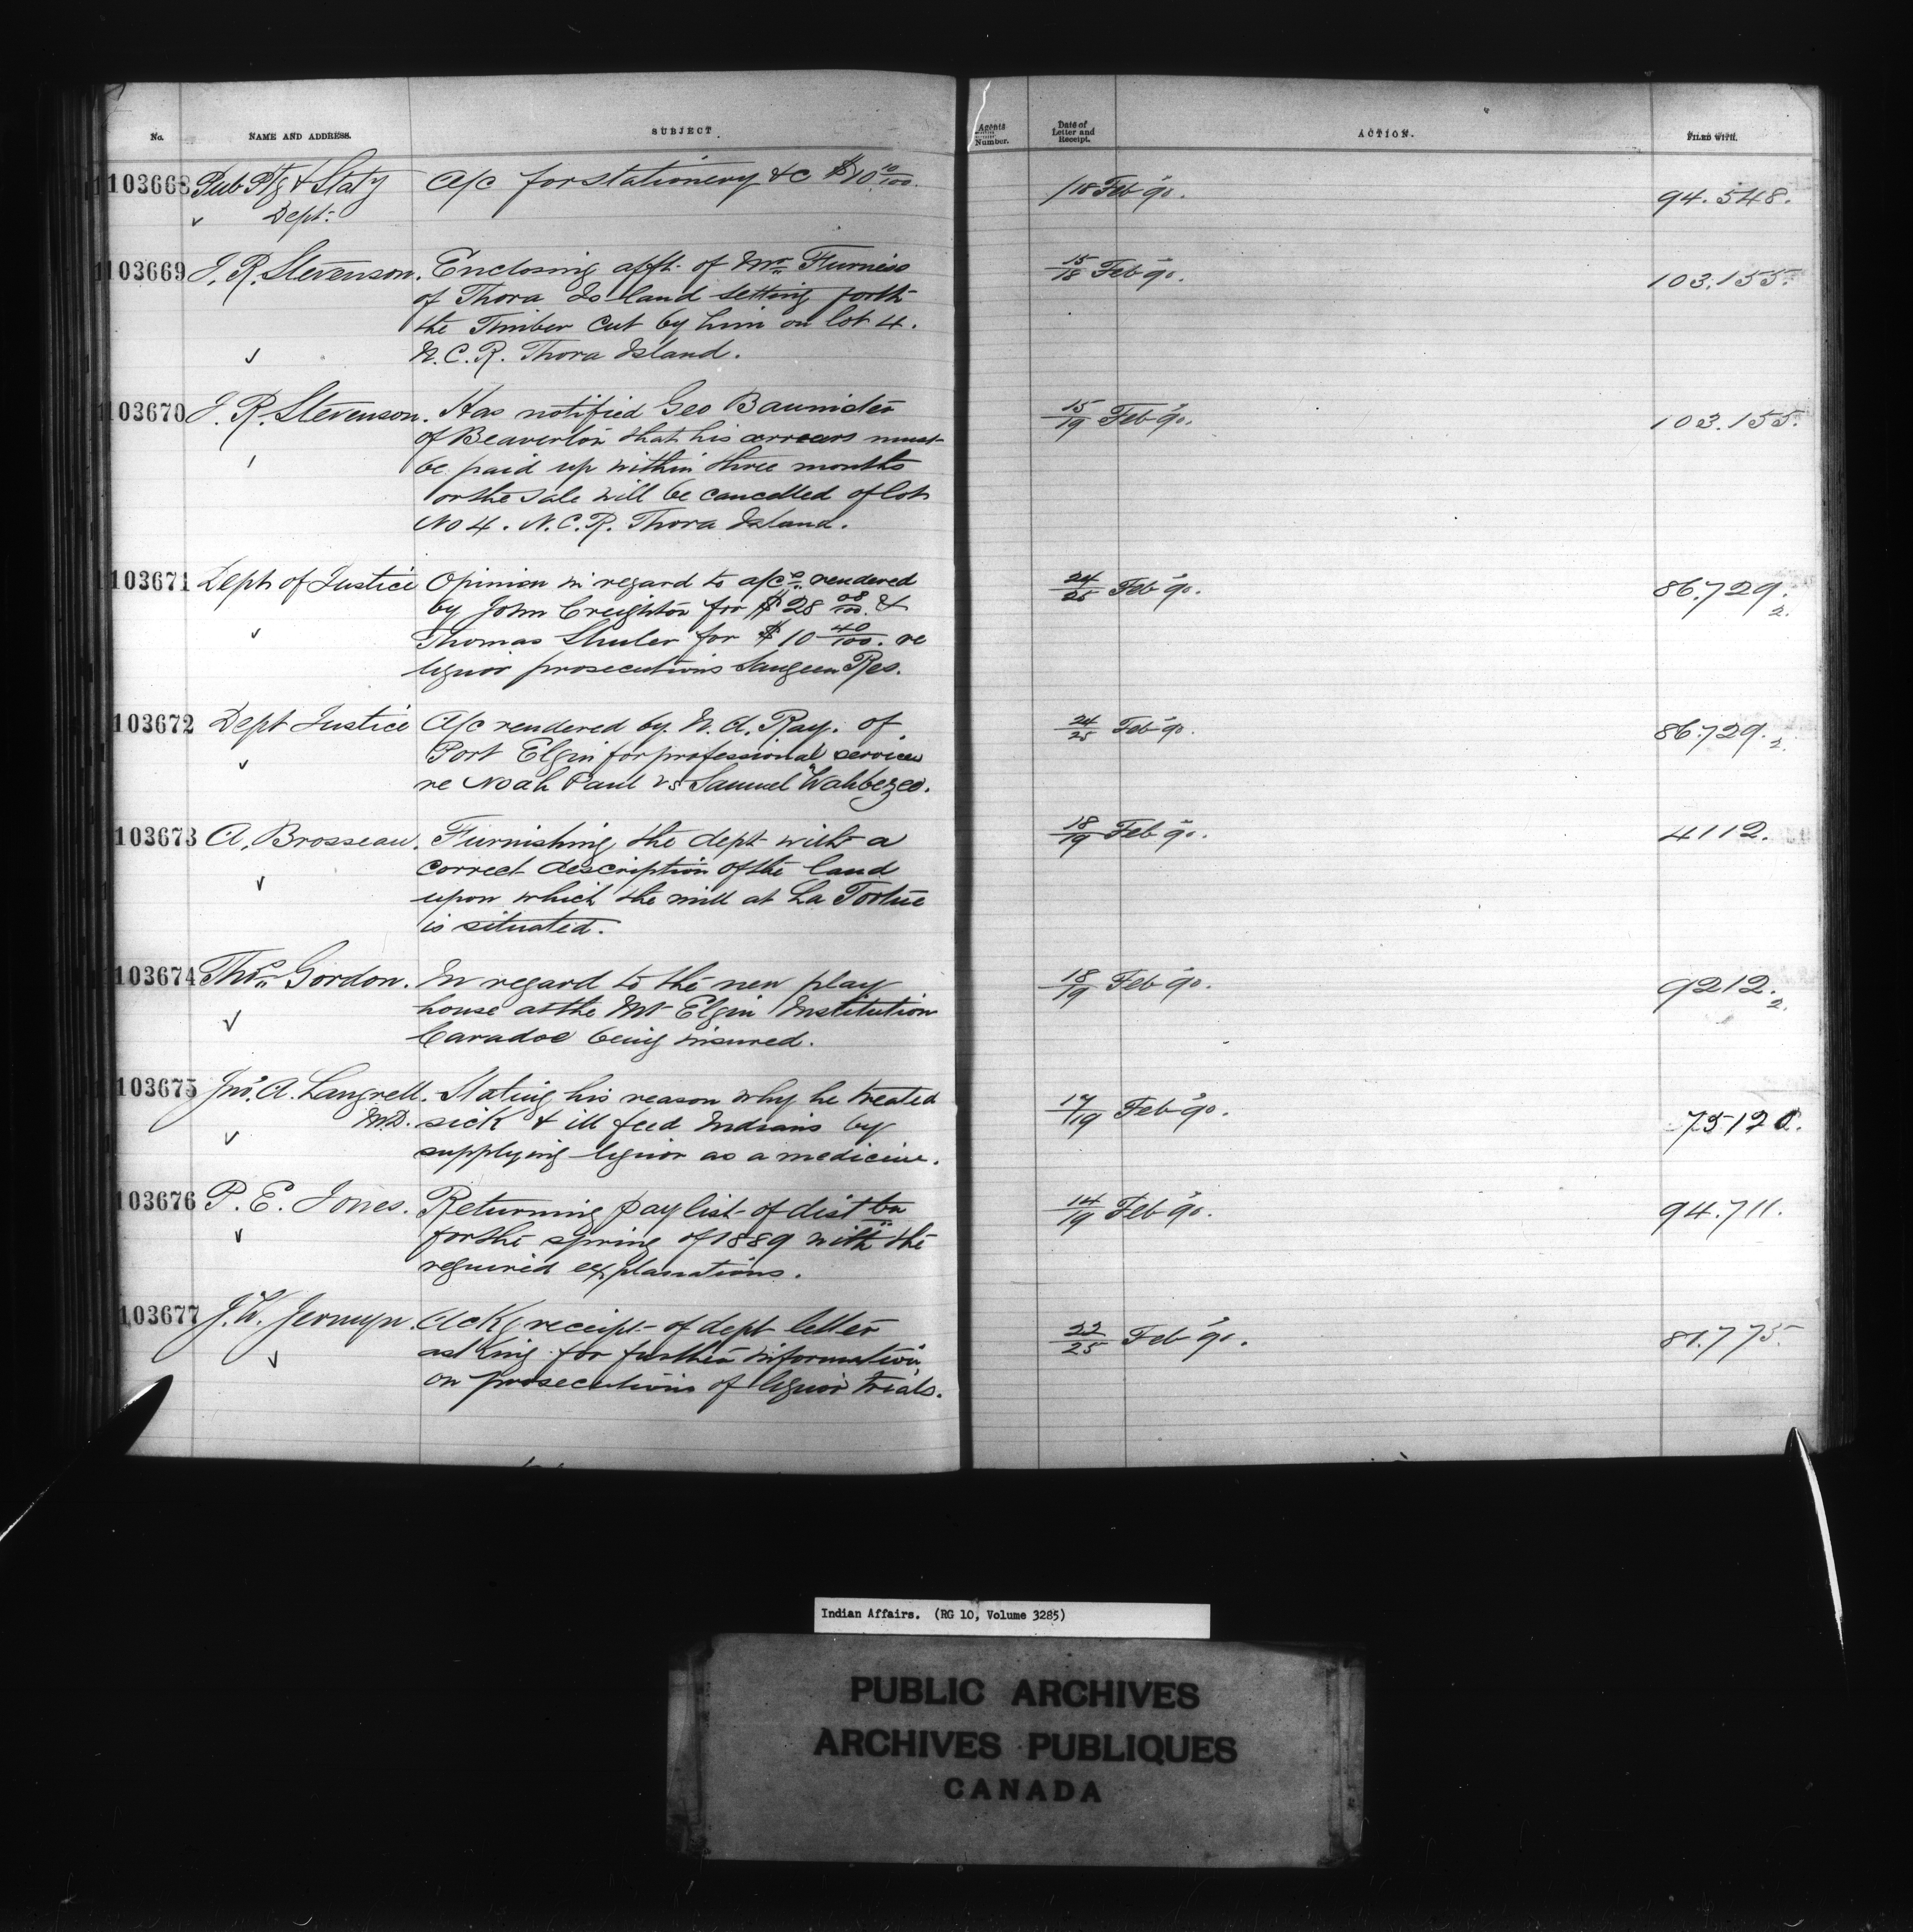 No. NAME AND ADDRESS. SUBJECT. Agents Number. Date of Letter and Receipt. ACTION. FILED WITH.
103668 Pub Ptg & Staty a/c for stationery &c $10 10/100. /18 Feb 90. 94.548.
Dept.
103669 J. R. Stevenson. Enclosing afft. of Mr. Furniss 15/18 Feb 90. 103.155.
of Thora Island setting forth
the Timber cut by him on lot 4.
N.C.R. Thora Island.
103670 J. R. Stevenson. Has notified Geo Baunister 15/19 Feb 90. 103.155.
of Beaverton that his arrears must
be paid up within three months
or the sale will be cancelled of lot
No 4. N.C.R. Thora Island.
103671 Dept of Justice Opinion in regard to a/cs rendered 24/25 Feb 90. 86.729.2.
by John Creighton for $28 08/100. &
Thomas Shuler for $10 40/100. re
liquor prosecutions Saugeen Res.
103672 Dept Justice A/c rendered by N. A. Ray. of 24/25 Feb 90. 86.729.2.
Port Elgin for professional services
re Noah Paul vs Samuel Wahbezee.
103673 A. Brosseau. Furnishing the dept with a 18/19 Feb 90. 4112.
correct description of the land
upon which the mill at La Tortue
is situated.
103674 Thos Gordon. In regard to the new play 18/19 Feb 90. 9212.2.
house at the Mt Elgin Institution
Caradoc being insured.
103675 Jno. A. Langrell. Stating his reason why he treated 17/19 Feb 90. 75120.
M.D. sick & ill feed Indians by
supplying liquor as a medicine.
103676 P. E. Jones. Returning pay list of distbn 14/19 Feb 90. 94.711.
for the spring of 1889 with the
required explanations.
103677 J. W. Jermyn. Ackg receipt of dept letter 22/25 Feb 90. 81.775.
asking for further information
on prosecutions of liquor trials.
Indian Affairs. (RG 10, Volume 3285)
PUBLIC ARCHIVES
ARCHIVES PUBLIQUES
CANADA